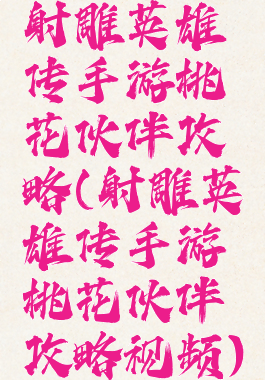 射雕英雄
传手游桃
花伙伴攻
略(射雕英
雄传手游
桃花伙伴
攻略视频)